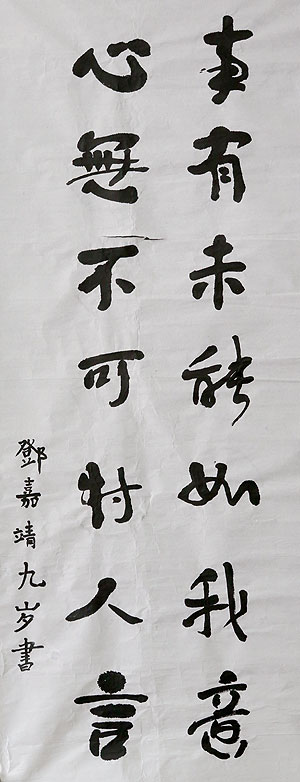 事有未能如我意
心無不可對人言
鄧嘉靖九岁書